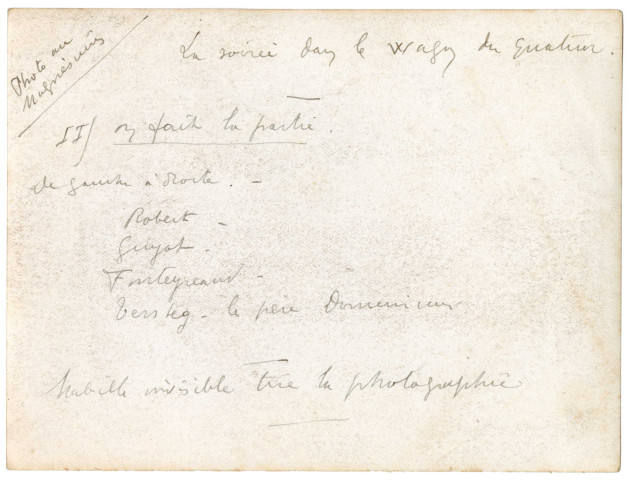 Photo au
Magnésium
La soirée dans le wagon du quatuor.
II) on fait la partie.
de gauche à droite. -
Robert -
Guyot -
Fonteyreaud -
Versteg - le père
invisible tire la photographie